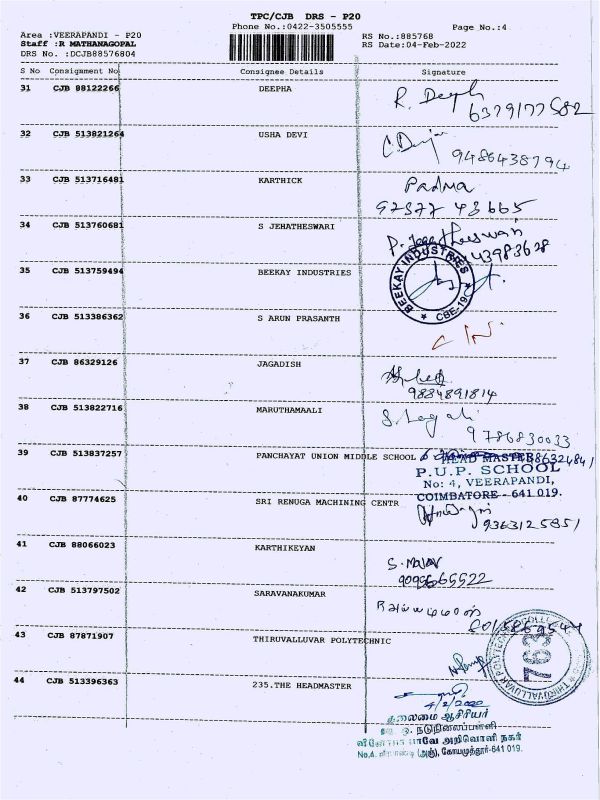 TPC/CJB DRS - P20
Phone No.:0422-3505555
Page No.:4
Area :VEERAPANDI - P20
RS No.:885768
Staff :R MATHANAGOPAL
RS Date:04-Feb-2022
DRS No. :DCJB88576804
S No Consignment No Consignee Details Signature
31 CJB 88122266 DEEPHA R. Deeph
6379177582
32 CJB 513821264 USHA DEVI
9486438794
33 CJB 513716481 KARTHICK Padma
92377 43665
34 CJB 513760681 S JEHATHESWARI P.
43983628
35 CJB 513759494 BEEKAY INDUSTRIES BEEKAY INDUSTRIES CBE-19
36 CJB 513386362 S ARUN PRASANTH
37 CJB 86329126 JAGADISH
9884891814
38 CJB 513822716 MARUTHAMAALI
9786830033
39 CJB 513837257 PANCHAYAT UNION MIDDLE SCHOOL HEAD MASTER
P.U.P. SCHOOL
No: 4, VEERAPANDI,
COIMBATORE - 641 019.
40 CJB 87774625 SRI RENUGA MACHINING CENTR
9363125851
41 CJB 88066023 KARTHIKEYAN
42 CJB 513797502 SARAVANAKUMAR
43 CJB 87871907 THIRUVALLUVAR POLYTECHNIC
763
44 CJB 513396363 235.THE HEADMASTER
தலைமை ஆசிரியர்
நடுநிலைப்பள்ளி
அறிவொளி நகர்
கோயமுத்தூர்-641 019.